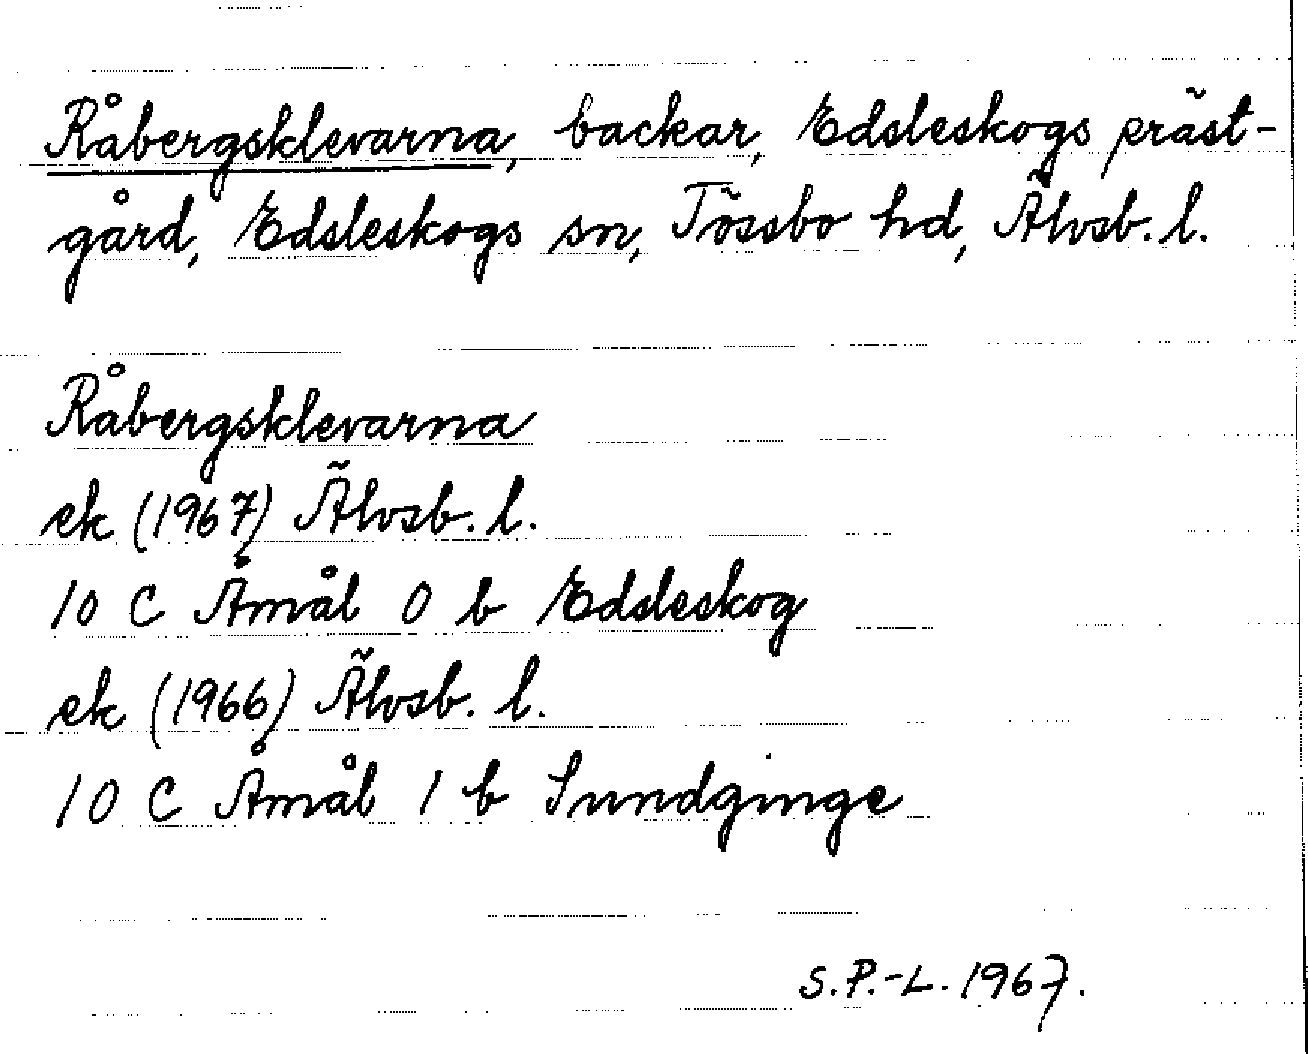 Råbergsklevarna, backar, Edsleskogs präst-
gård, Edsleskogs sn, Tössbo hd, Älvsb. l.
Råbergsklevarna
ek (1967) Älvsb. l.
10 C Åmål 0 b Edsleskog
ek (1966) Älvsb. l.
10 C Åmål 1 b Sundginge
S.P.-L. 1967.